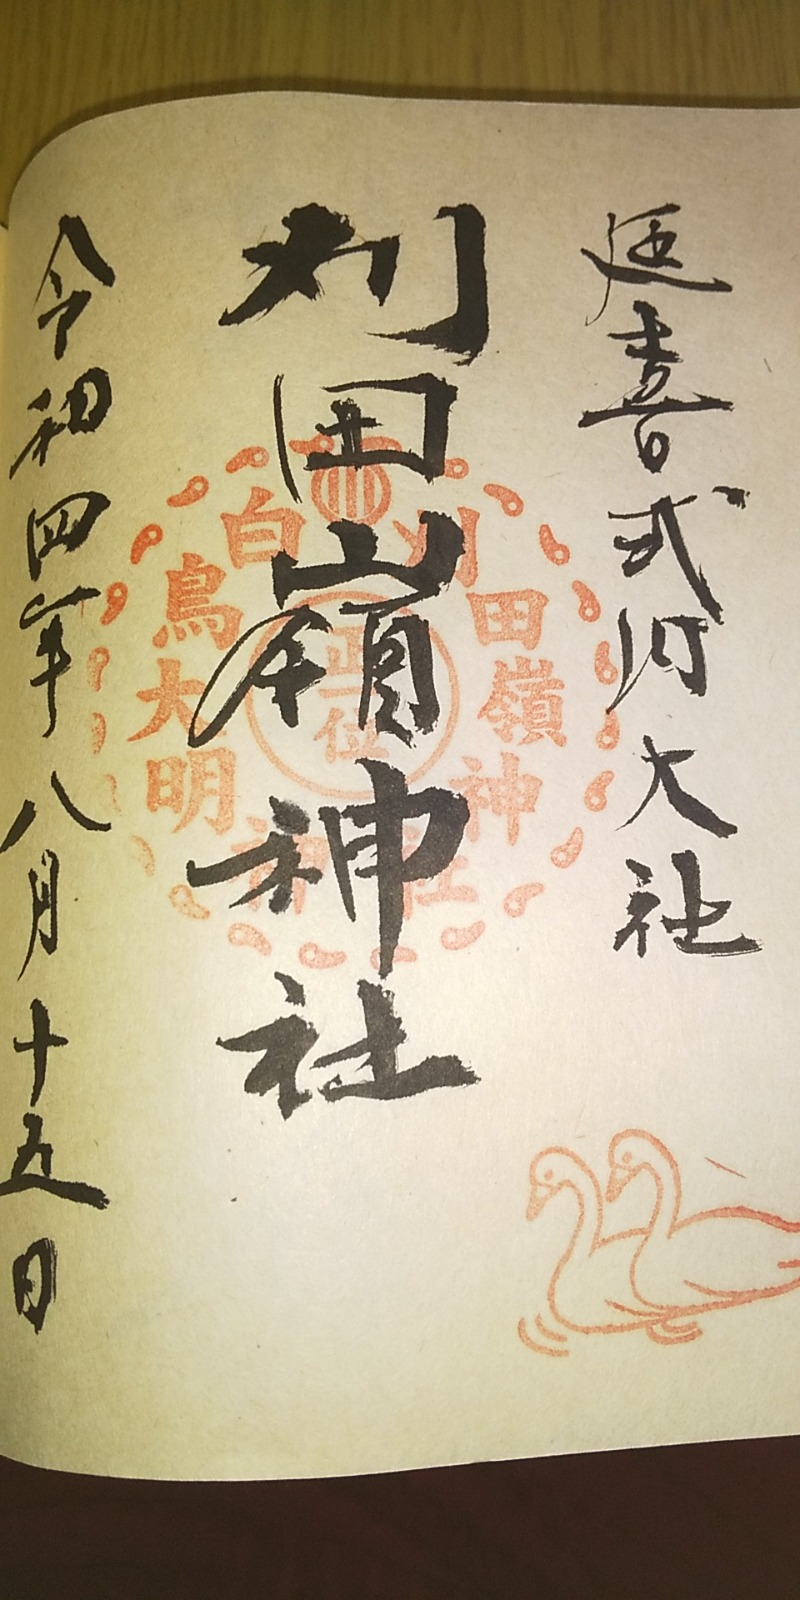 延喜式内大社
刈田嶺神社
令和四年八月十五日
刈田嶺神社
白鳥大明神
正一位